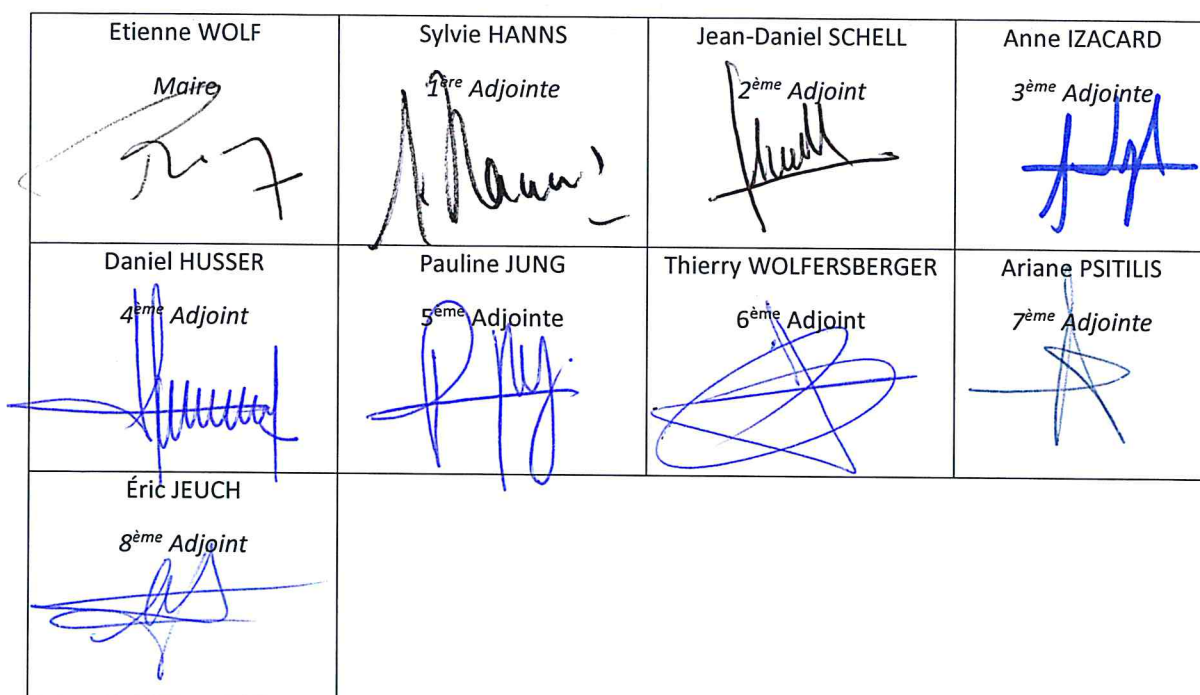 Etienne WOLF
Maire
Sylvie HANNS
1ère Adjointe
Jean-Daniel SCHELL
2ème Adjoint
Anne IZACARD
3ème Adjointe
Daniel HUSSER
4ème Adjoint
Pauline JUNG
5ème Adjointe
Thierry WOLFERSBERGER
6ème Adjoint
Ariane PSITILIS
7ème Adjointe
Éric JEUCH
8ème Adjoint